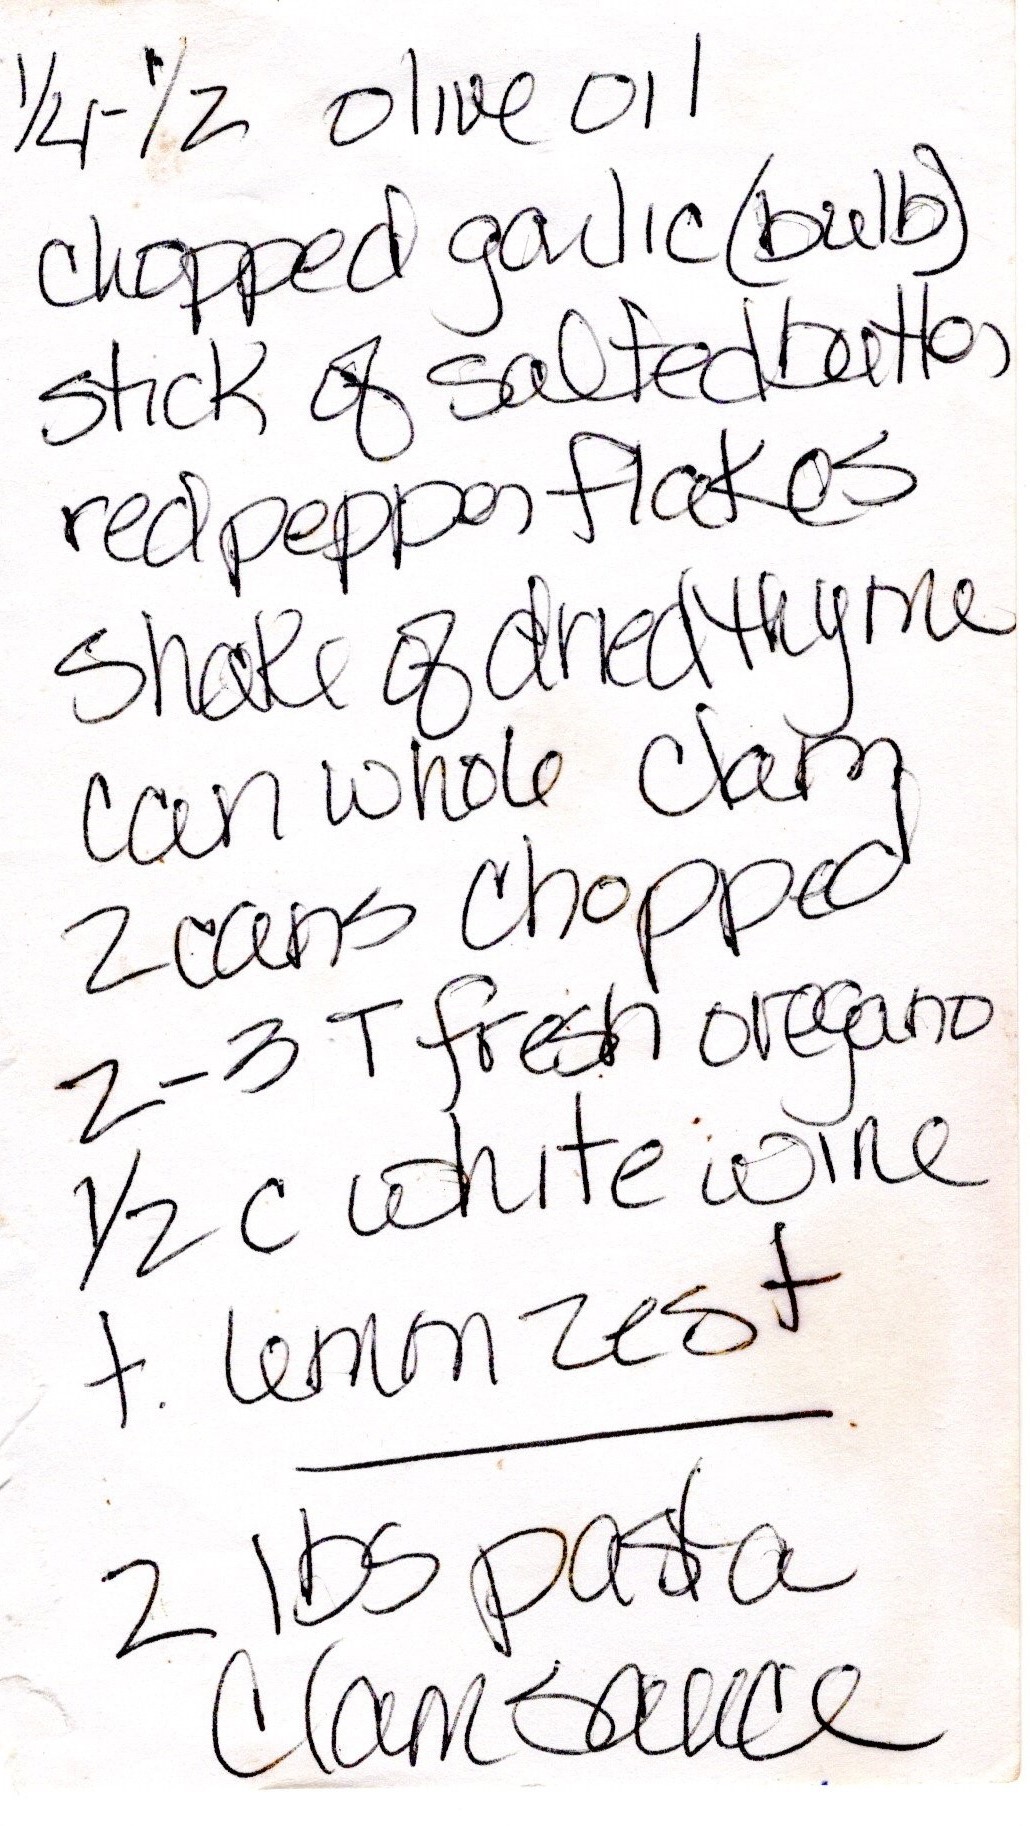 1/4-1/2 olive oil
chopped garlic (bulb)
stick of salted butter
red pepper flakes
shake of dried thyme
can whole clam
2 cans chopped
2-3 T fresh oregano
1/2 c white wine
t. lemon zest
2 lbs pasta
Clam sauce